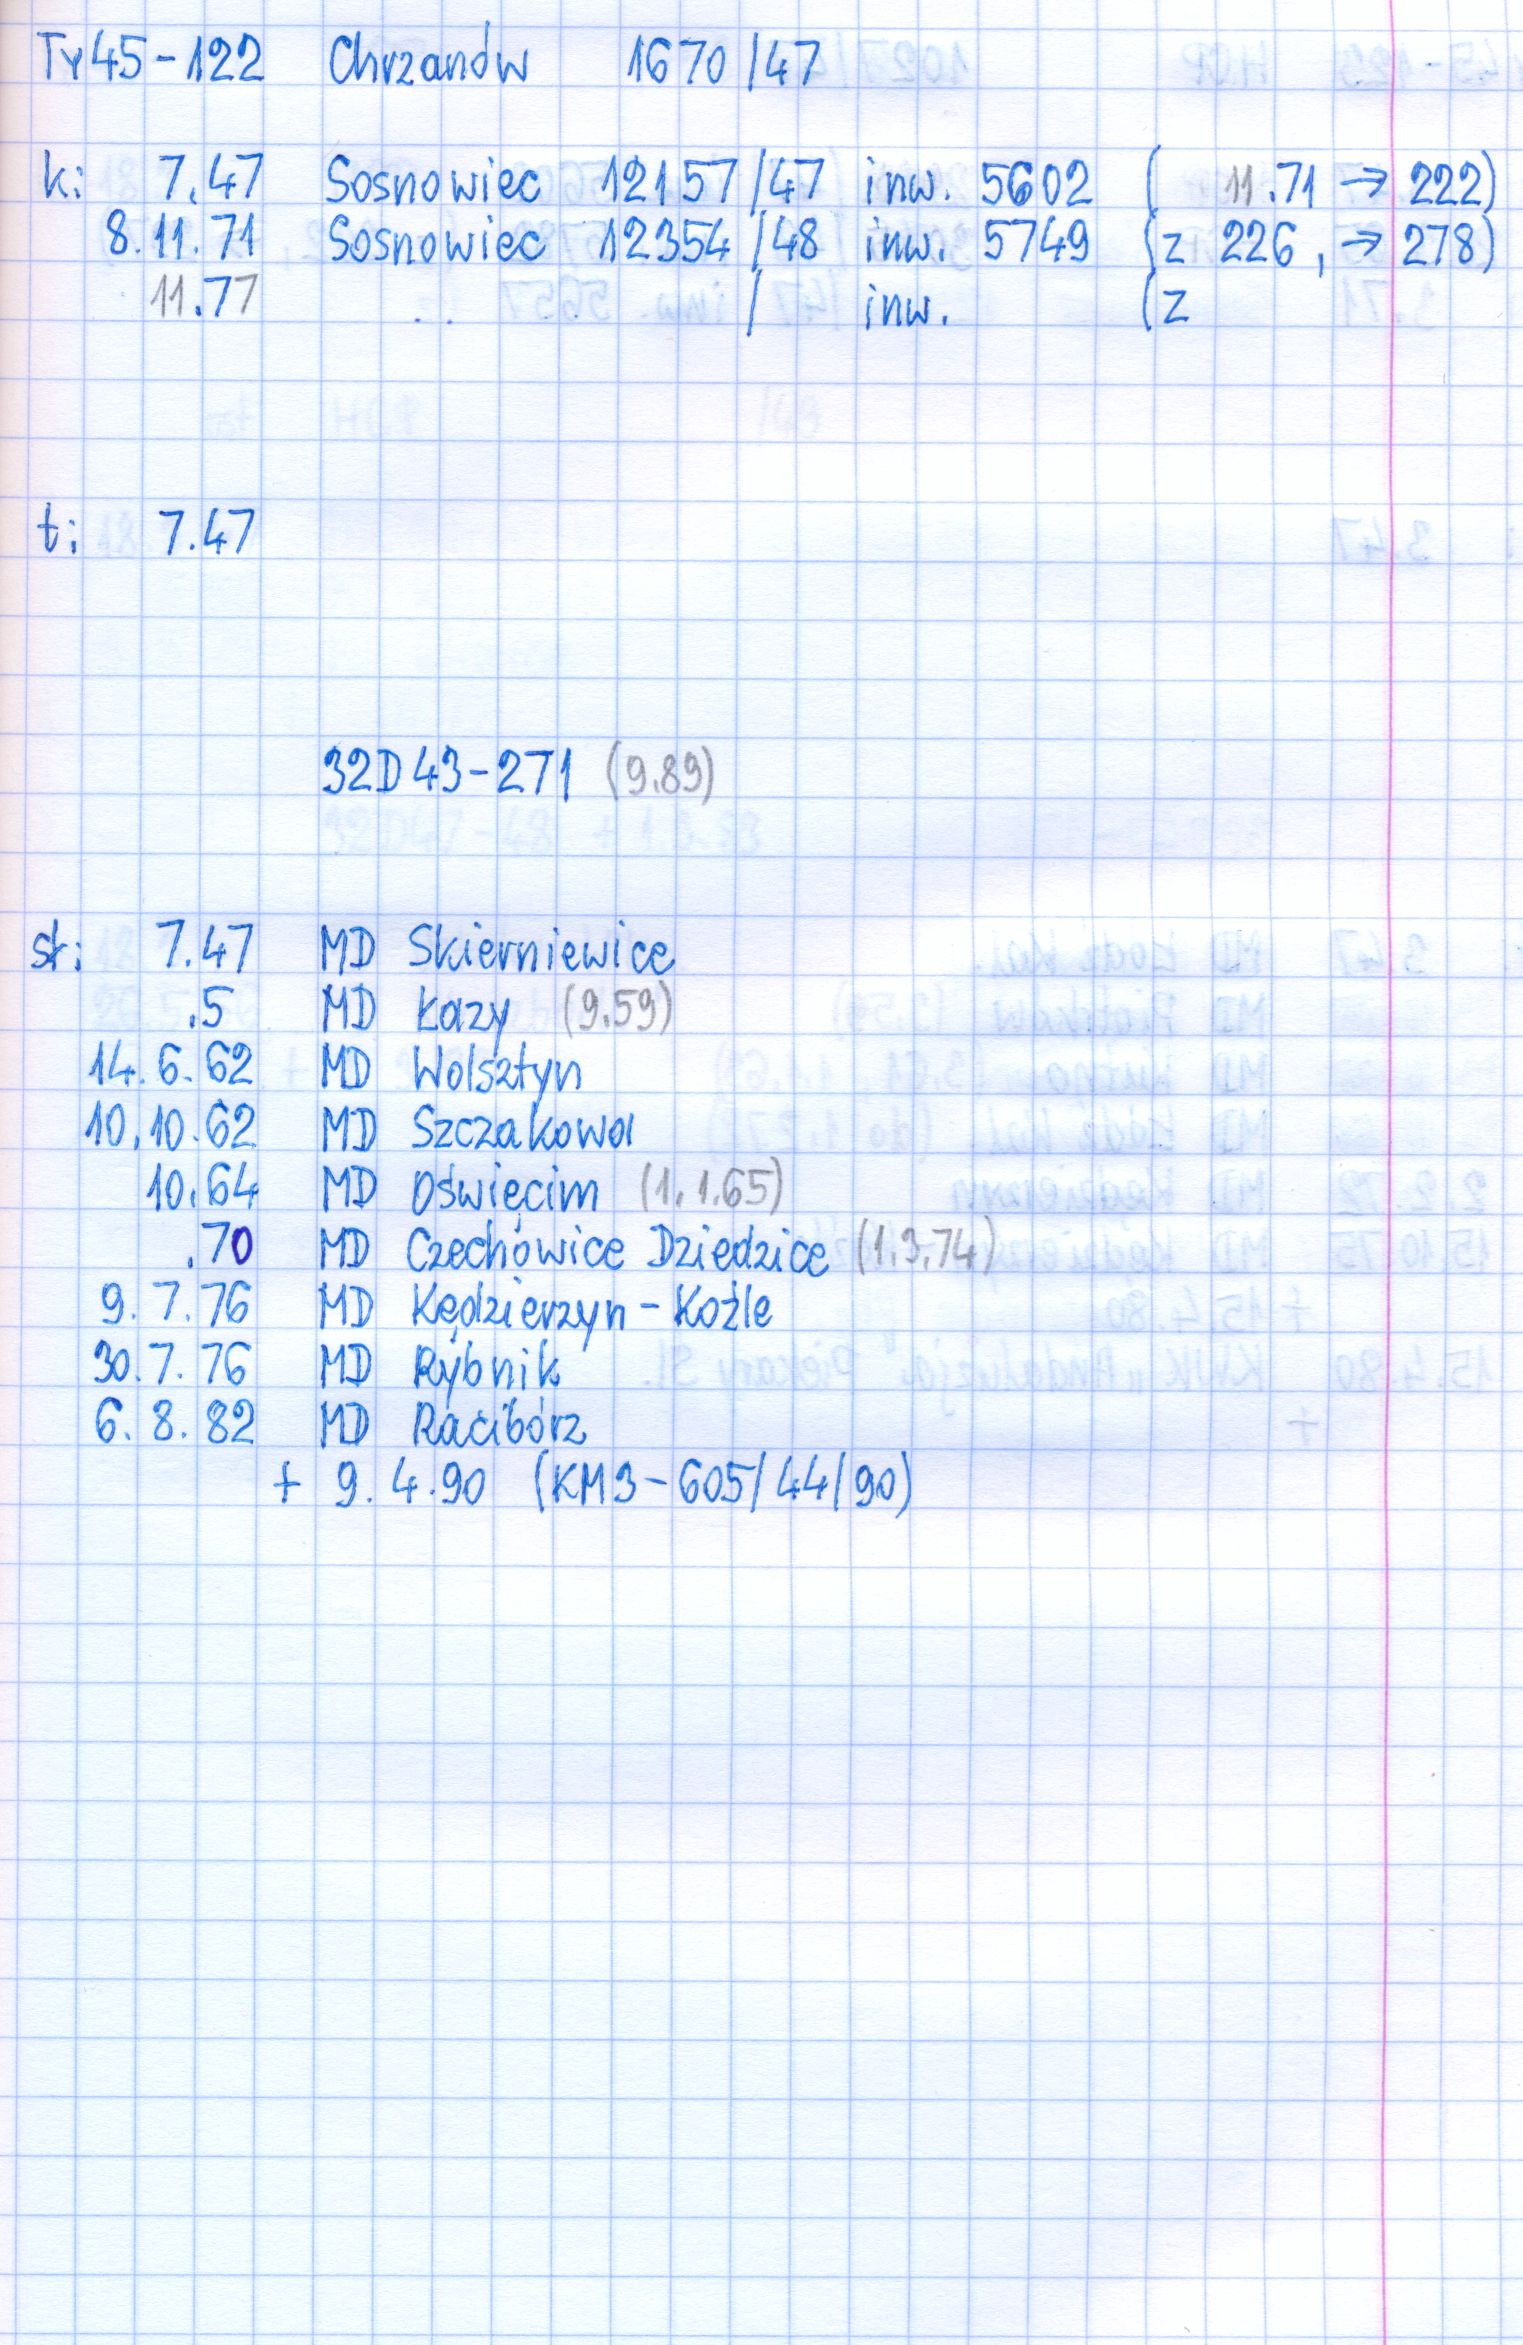 Ty45-122 Chrzanów 1670/47
k: 7.47 Sosnowiec 12157/47 inw. 5602 ( 11.71 → 222)
8.11.71 Sosnowiec 12354/48 inw. 5749 (z 226, → 278)
11.77 / inw. (z
t: 7.47
32D43-271 (9.89)
st: 7.47 MD Skierniewice
.5 MD Łazy (9.59)
14.6.62 MD Wolsztyn
10.10.62 MD Szczakowa
10.64 MD Oświęcim (1.1.65)
.70 MD Czechowice Dziedzice (1.3.74)
9.7.76 MD Kędzierzyn-Koźle
30.7.76 MD Rybnik
6.8.82 MD Racibórz
+ 9.4.90 (KM3-605/44/90)